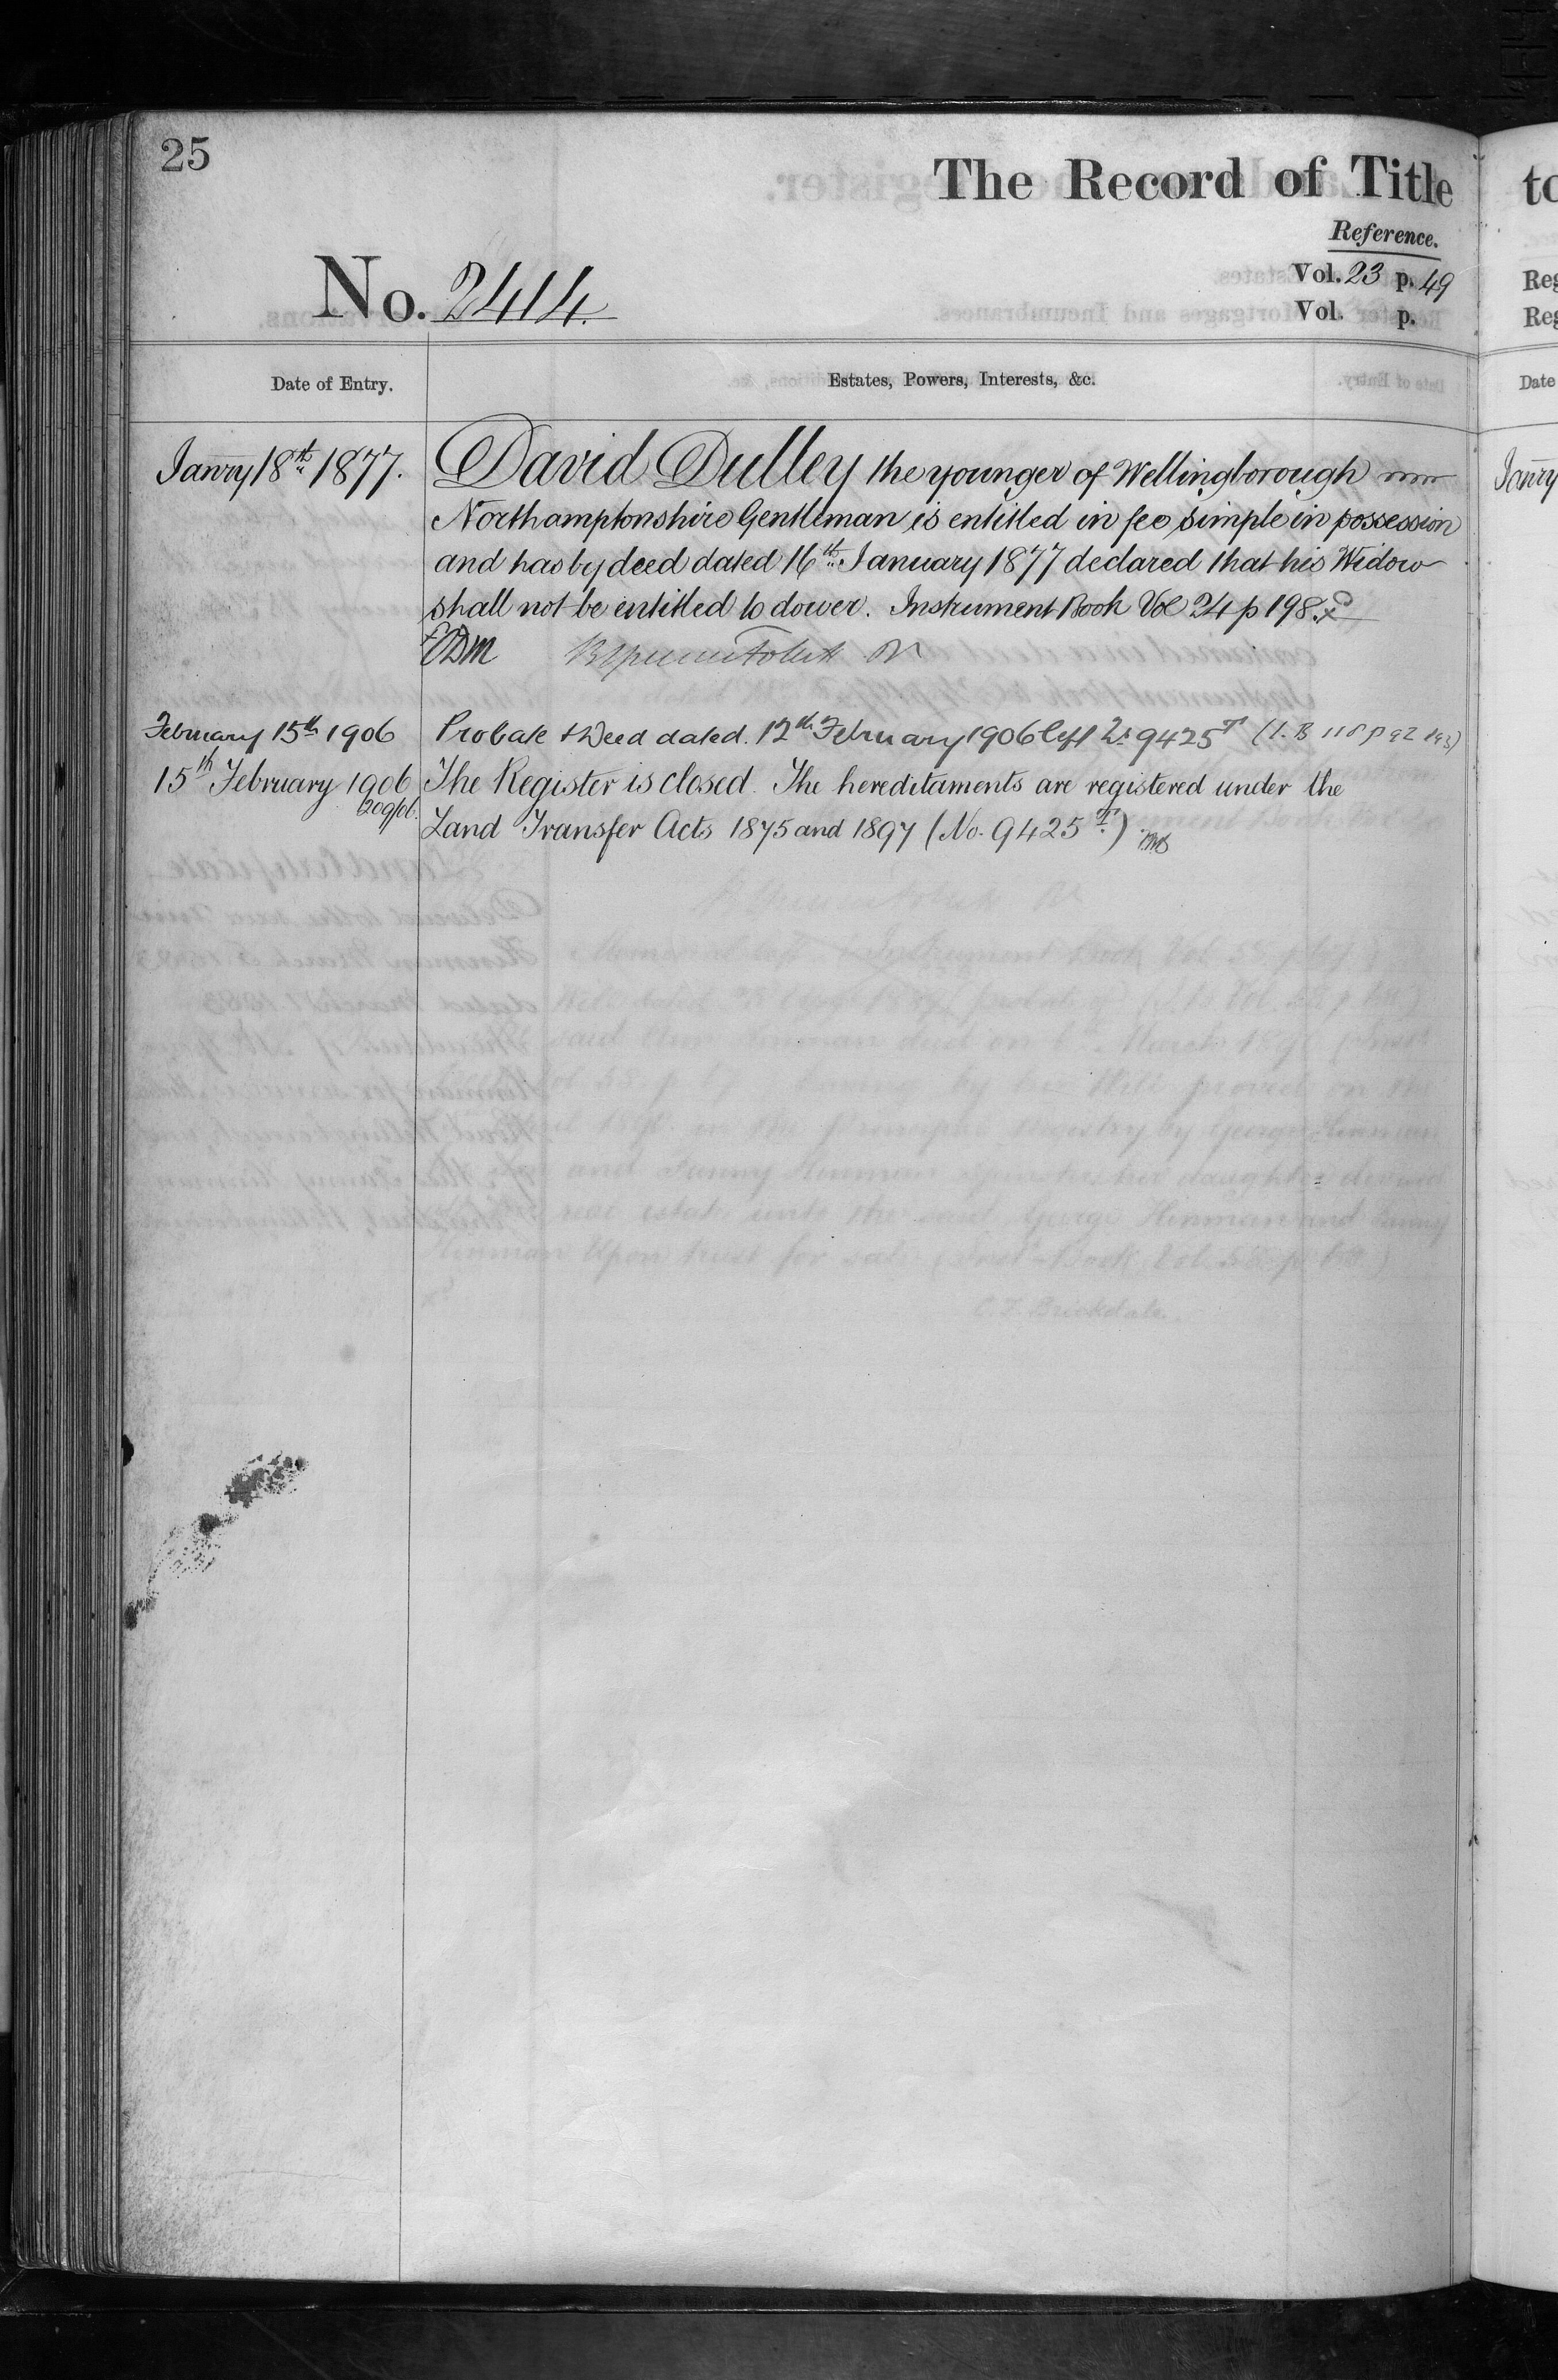 25
The Record of Title
Reference.
No. 2414.
Vol. 23 p. 49
Vol. p.
Date of Entry.
Estates, Powers, Interests, &c.
Janry 18th 1877.
David Dulley the younger of Wellingborough
Northamptonshire Gentleman is entitled in fee simple in possession
and has by deed dated 16th January 1877 declared that his Widow
shall not be entitled to dower. Instrument Book Vol 24 p 198.
February 15th 1906
Probate & Deed dated. 12th February 1906 left 9425T (I. B 118 p 92
15th February 1906
The Register is closed. The hereditaments are registered under the
Land Transfer Acts 1875 and 1897 (No. 9425T.)
to
Reg
Reg
Date
Janry